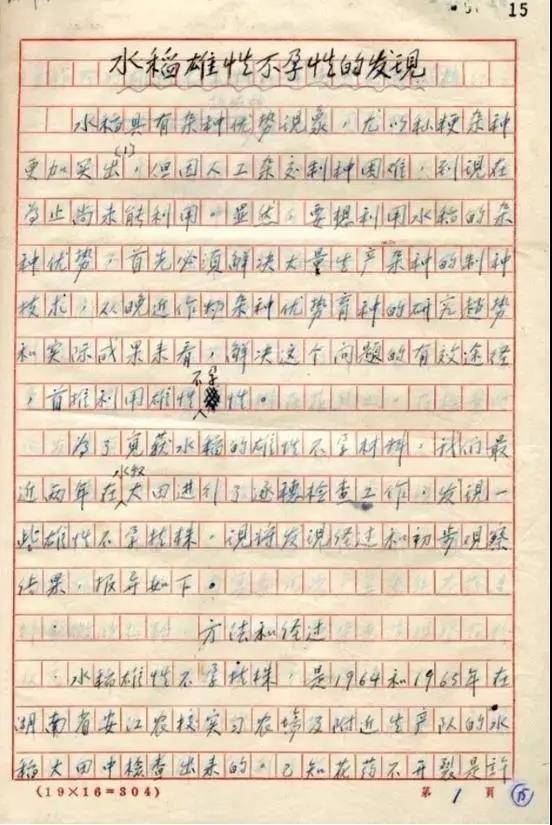 15
水稻雄性不孕性的发现
水稻具有杂种优势现象，尤以籼粳杂种
更加突出(1)，但因人工杂交制种困难，到现在
为止尚未能利用。显然，要想利用水稻的杂
种优势，首先必须解决大量生产杂种的制种
技术，从晚近作物杂种优势育种的研究趋势
和实际成果来看，解决这个问题的有效途径
，首推利用雄性不孕性。
为了获水稻的雄性不孕材料，我们最
近两年在水稻大田进行了逐穗检查工作，发现一
些雄性不孕植株，现将发现经过和初步观察
结果，报导如下。
方法和经过
水稻雄性不孕植株，是1964和1965年在
湖南省安江农校实习农场及附近生产队的水
稻大田中检查出来的。已知花药不开裂是许
(19×16=304)
第 1 頁
15